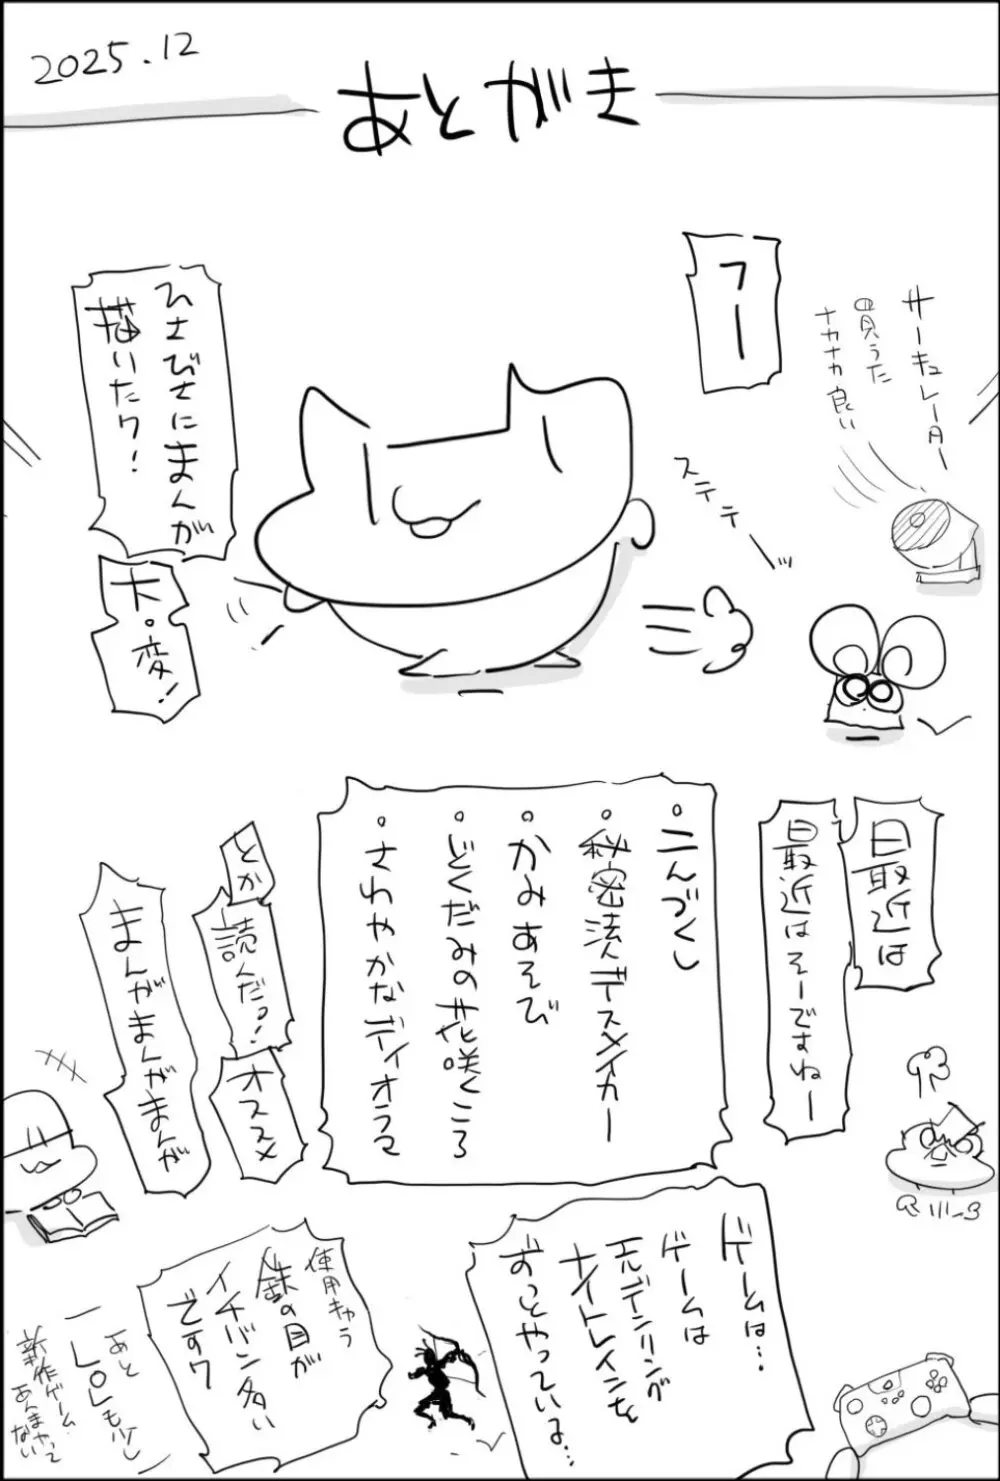 2025.12
あとがき
フー
サーキュレーター
買うた
ナカナカ良い
ステテーッ
ひさびさにまんが
描いたワ!
大・変!
最近は
最近はそーですねー
・二んづくし
・秘密法人デスメイカー
・かみあそび
・どくだみの花咲くころ
・さわやかなディオラマ
とか
読んだっ!
オススメ
まんがまんがまんが
ゲームは…
ゲームは
エルデンリング
ナイトレインを
ずっとやっているよ…
使用キャラ
鉄の目が
イチバン多い
ですワ
あと
LOLも少し
新作ゲーム
あんまやって
ない